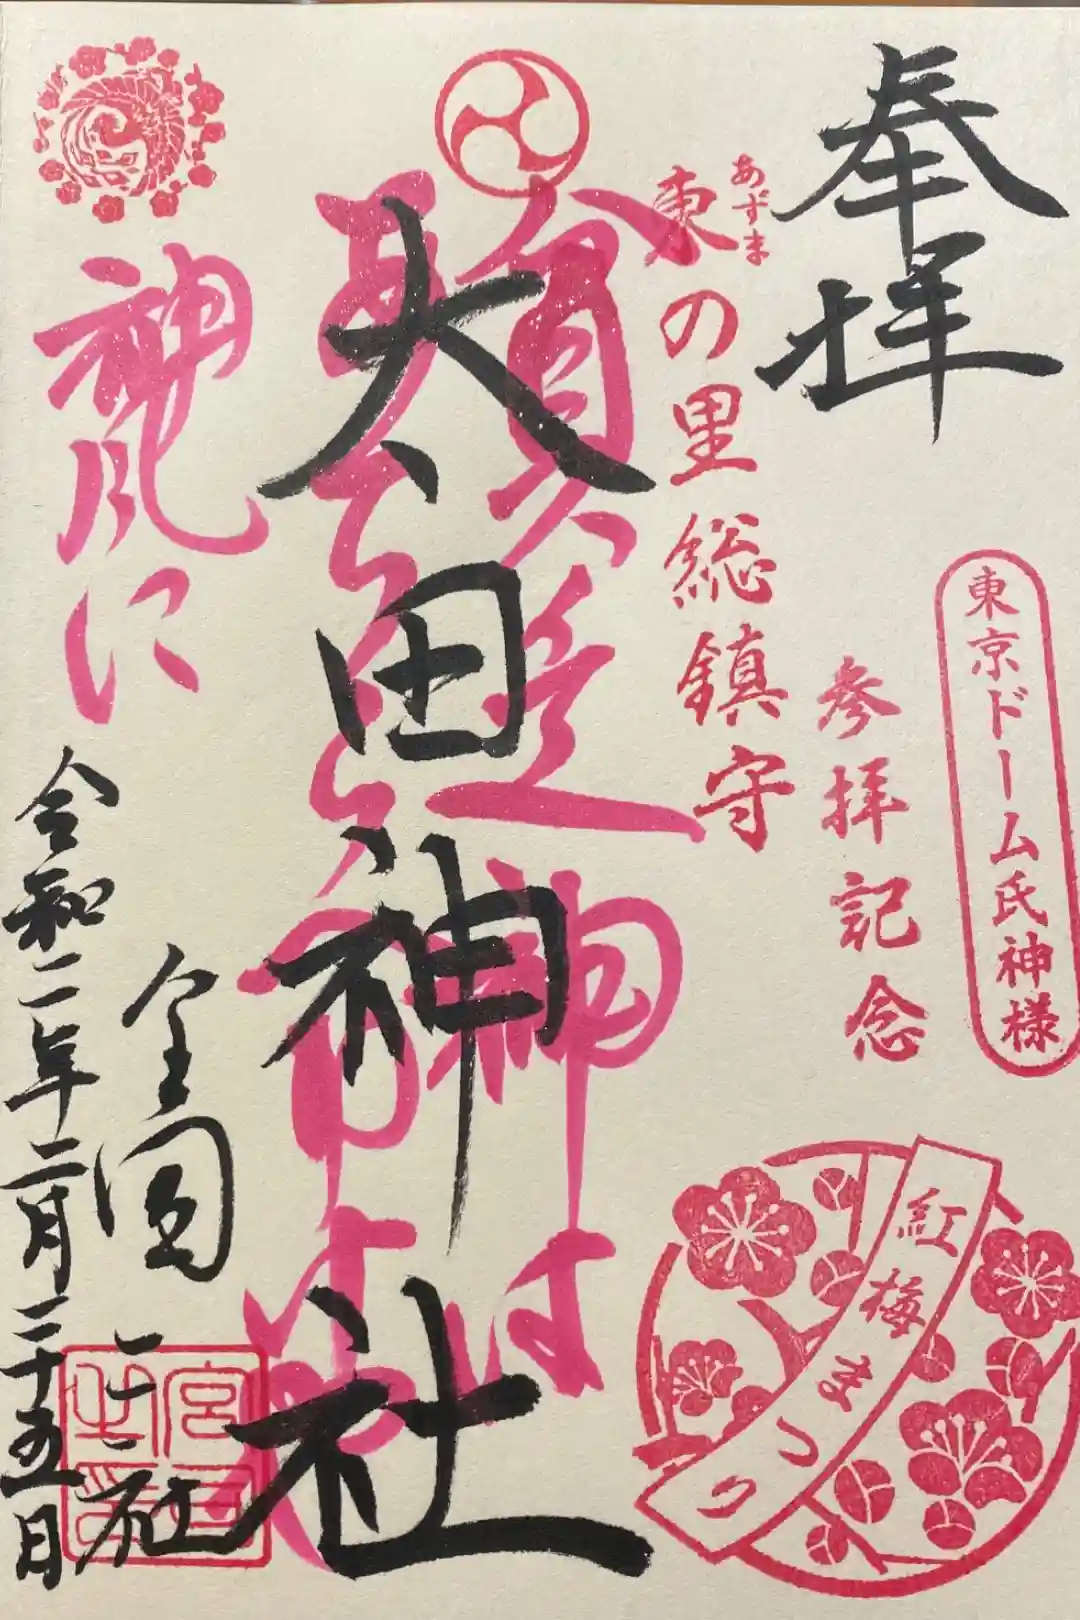 奉拝
東京ドーム氏神様
参拝記念
あずま
東の里総鎮守
紅梅まつり
貧乏神は
太田神社
神風に
全国二社
宮司之印
令和二年二月二十五日